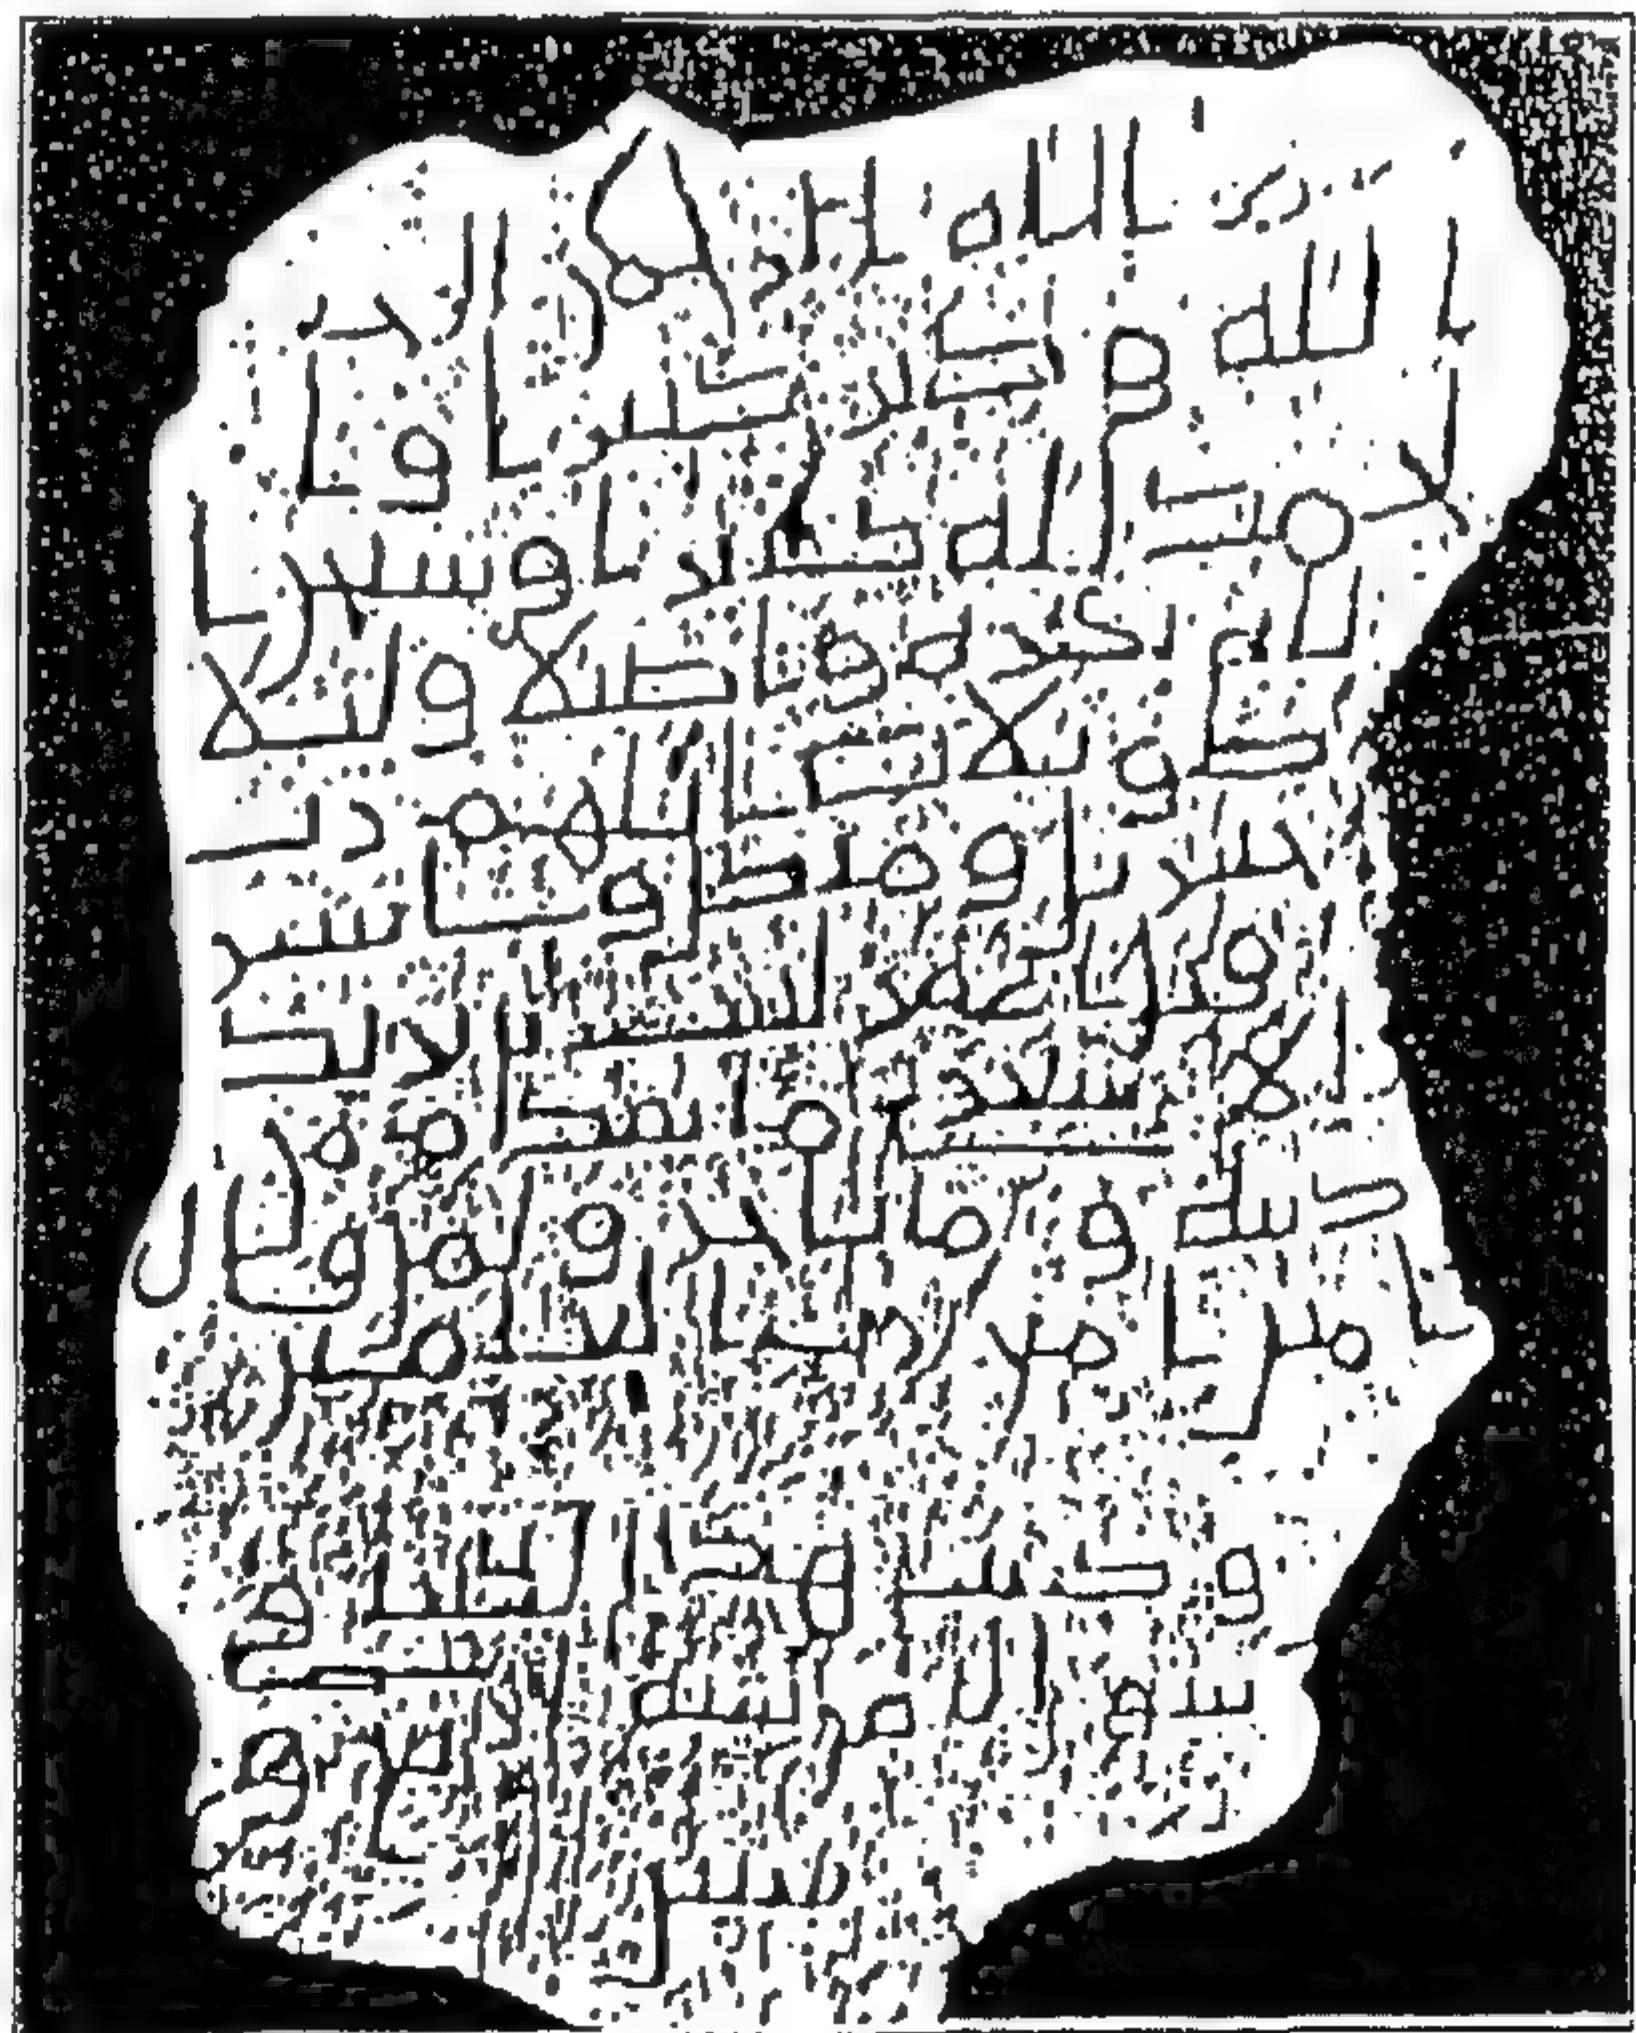 بسم الله الرحمن الرحيم
الله وكبر كبيرا وا
لحمد لله كثيرا وسبحن ا
لله بكرة واصيلا وليلا
طويلا اللهم رب
جبريل وميكل واسر
فيل اغفر لثبت بن يزيد
الاشعري ما تقدم من
ذنبه وما تاخر ولمن قال
امين امين رب العلمين
وكتبت هذا الكتب في
شوال من سنة اربع و
ستين